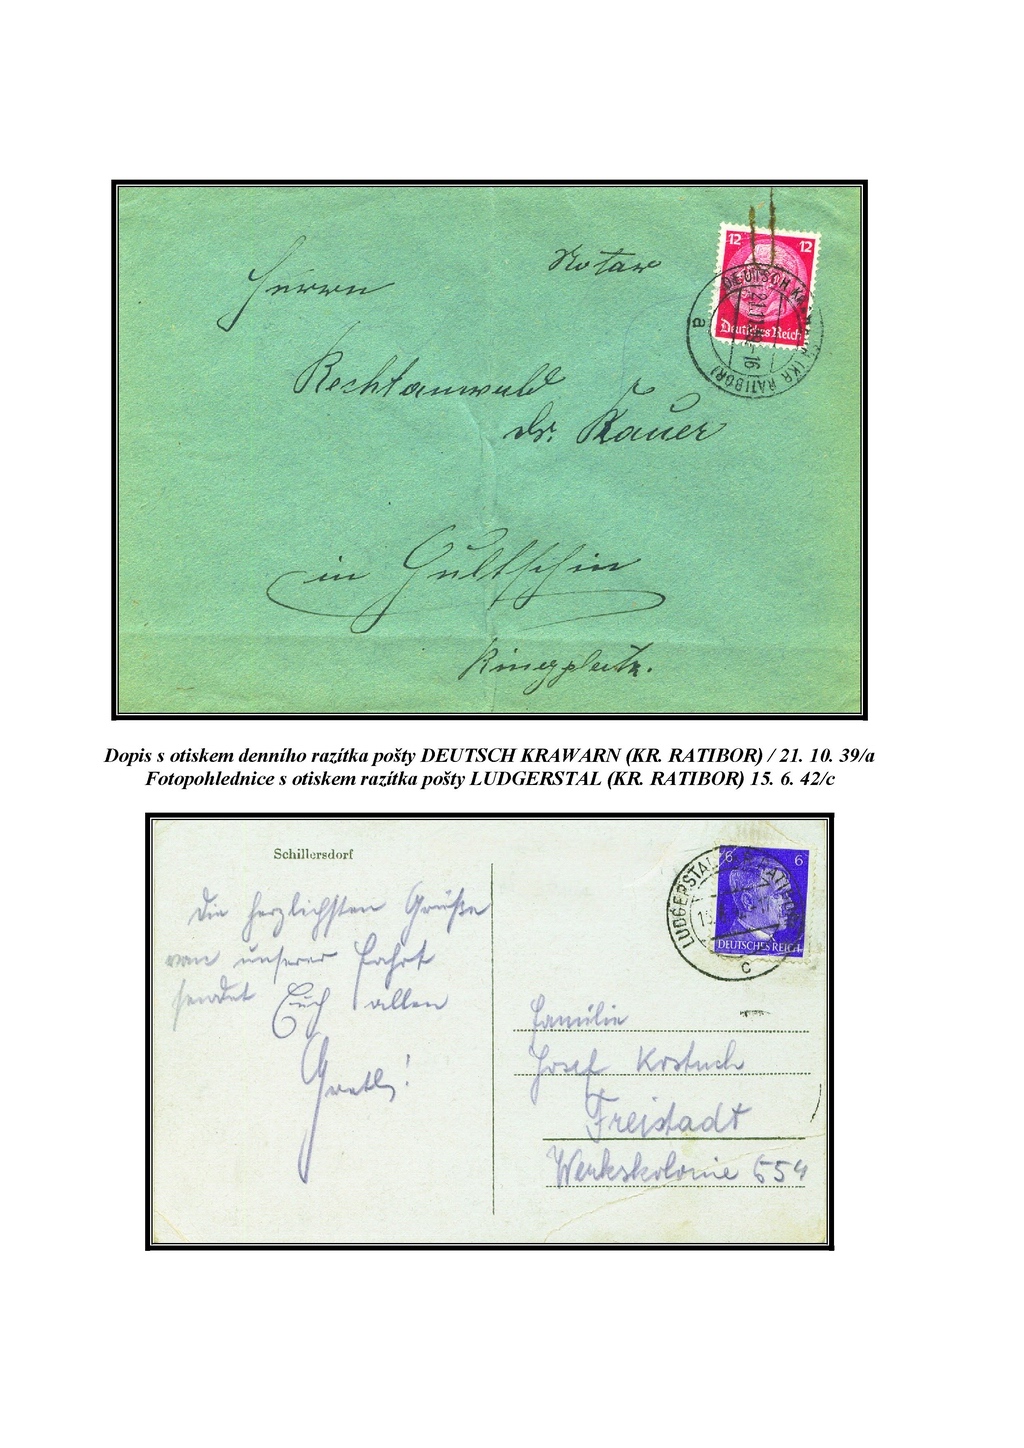 Herrn
Notar
Rechtanwald
Dr. Kauer
in Hultschin
Ringplatz.
12 12
Deutsches Reich
DEUTSCH KRAWARN (KR. RATIBOR)
21.10.39-16
a
Dopis s otiskem denního razítka pošty DEUTSCH KRAWARN (KR. RATIBOR) / 21. 10. 39/a
Fotopohlednice s otiskem razítka pošty LUDGERSTAL (KR. RATIBOR) 15. 6. 42/c
Schillersdorf
Die herzlichsten Grüße
von unserer Fahrt
sendet Euch allen
Gretl!
6 6
DEUTSCHES REICH
LUDGERSTAL (KR. RATIBOR)
c
Familie
Josef Kostuch
Freistadt
Werkskolonie 554